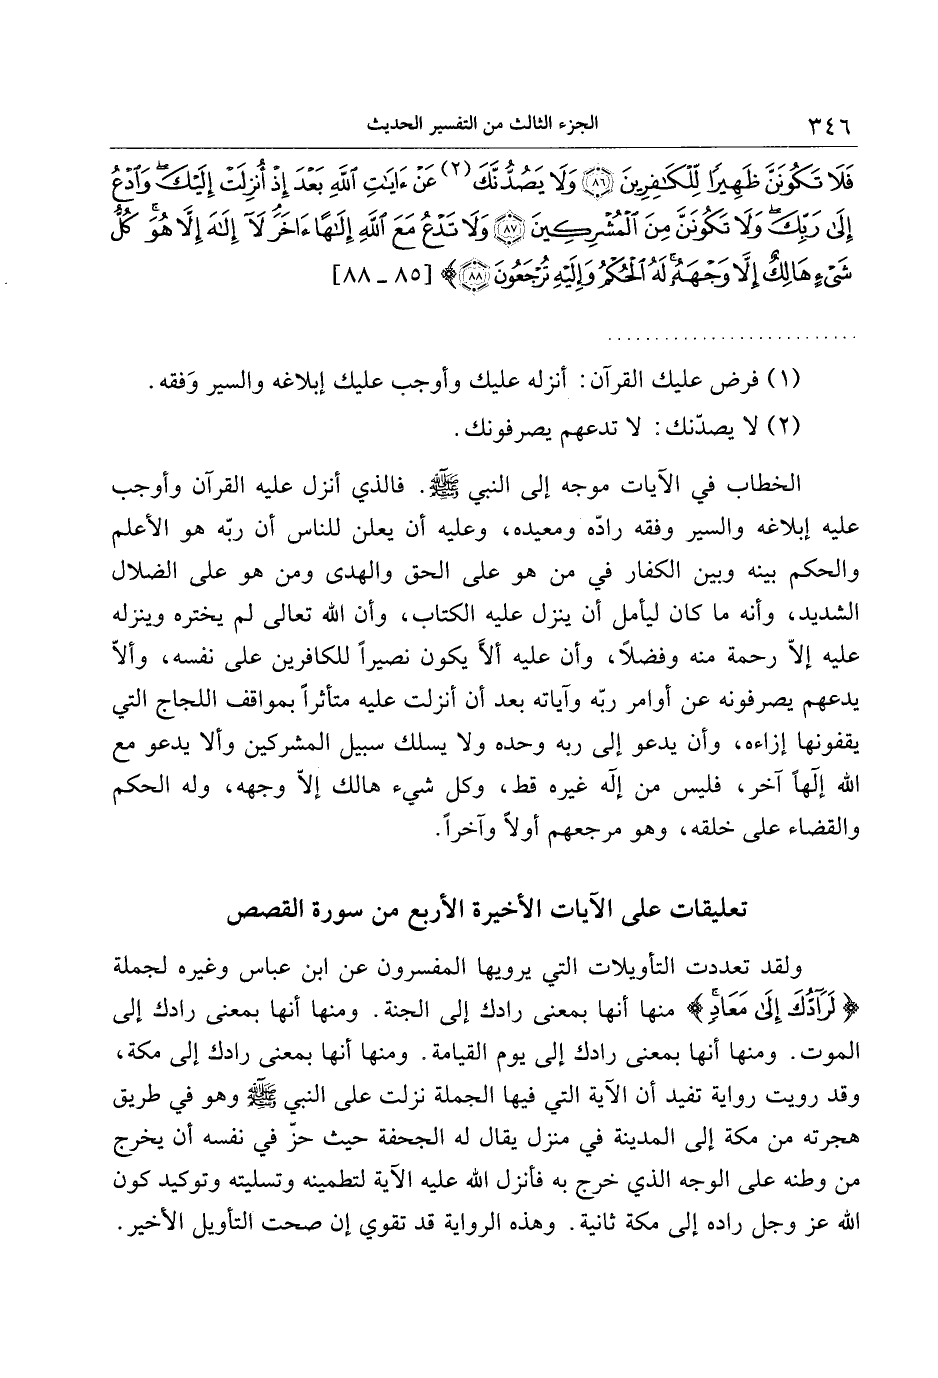 ٣٤٦ الجزء الثالث من التفسير الحديث
فَلَا تَكُونَنَّ ظَهِيرًا لِّلْكَافِرِينَ ﴿٨٦﴾ وَلَا يَصُدُّنَّكَ (٢) عَنْ ءَايَاتِ اللَّهِ بَعْدَ إِذْ أُنزِلَتْ إِلَيْكَ وَادْعُ
إِلَى رَبِّكَ وَلَا تَكُونَنَّ مِنَ الْمُشْرِكِينَ ﴿٨٧﴾ وَلَا تَدْعُ مَعَ اللَّهِ إِلَٰهًا ءَاخَرَ لَا إِلَٰهَ إِلَّا هُوَ كُلُّ
شَيْءٍ هَالِكٌ إِلَّا وَجْهَهُ لَهُ الْحُكْمُ وَإِلَيْهِ تُرْجَعُونَ ﴿٨٨﴾ ﴾ [٨٥ ـ ٨٨]
(١) فرض عليك القرآن: أنزله عليك وأوجب عليك إبلاغه والسير وَفقه.
(٢) لا يصدّنك: لا تدعهم يصرفونك.
الخطاب في الآيات موجه إلى النبي ﷺ. فالذي أنزل عليه القرآن وأوجب
عليه إبلاغه والسير وفقه رادّه ومعيده، وعليه أن يعلن للناس أن ربّه هو الأعلم
والحكم بينه وبين الكفار في من هو على الحق والهدى ومن هو على الضلال
الشديد، وأنه ما كان ليأمل أن ينزل عليه الكتاب، وأن الله تعالى لم يختره وينزله
عليه إلاّ رحمة منه وفضلاً، وأن عليه ألاّ يكون نصيراً للكافرين على نفسه، وألاّ
يدعهم يصرفونه عن أوامر ربّه وآياته بعد أن أنزلت عليه متأثراً بمواقف اللجاج التي
يقفونها إزاءه، وأن يدعو إلى ربه وحده ولا يسلك سبيل المشركين وألا يدعو مع
الله إلٰهاً آخر، فليس من إلٰه غيره قط، وكل شيء هالك إلاّ وجهه، وله الحكم
والقضاء على خلقه، وهو مرجعهم أولاً وآخراً.
تعليقات على الآيات الأخيرة الأربع من سورة القصص
ولقد تعددت التأويلات التي يرويها المفسرون عن ابن عباس وغيره لجملة
﴿ لَرَآدُّكَ إِلَى مَعَادٍ ﴾ منها أنها بمعنى رادك إلى الجنة. ومنها أنها بمعنى رادك إلى
الموت. ومنها أنها بمعنى رادك إلى يوم القيامة. ومنها أنها بمعنى رادك إلى مكة،
وقد رويت رواية تفيد أن الآية التي فيها الجملة نزلت على النبي ﷺ وهو في طريق
هجرته من مكة إلى المدينة في منزل يقال له الجحفة حيث حزّ في نفسه أن يخرج
من وطنه على الوجه الذي خرج به فأنزل الله عليه الآية لتطمينه وتسليته وتوكيد كون
الله عز وجل راده إلى مكة ثانية. وهذه الرواية قد تقوي إن صحت التأويل الأخير.